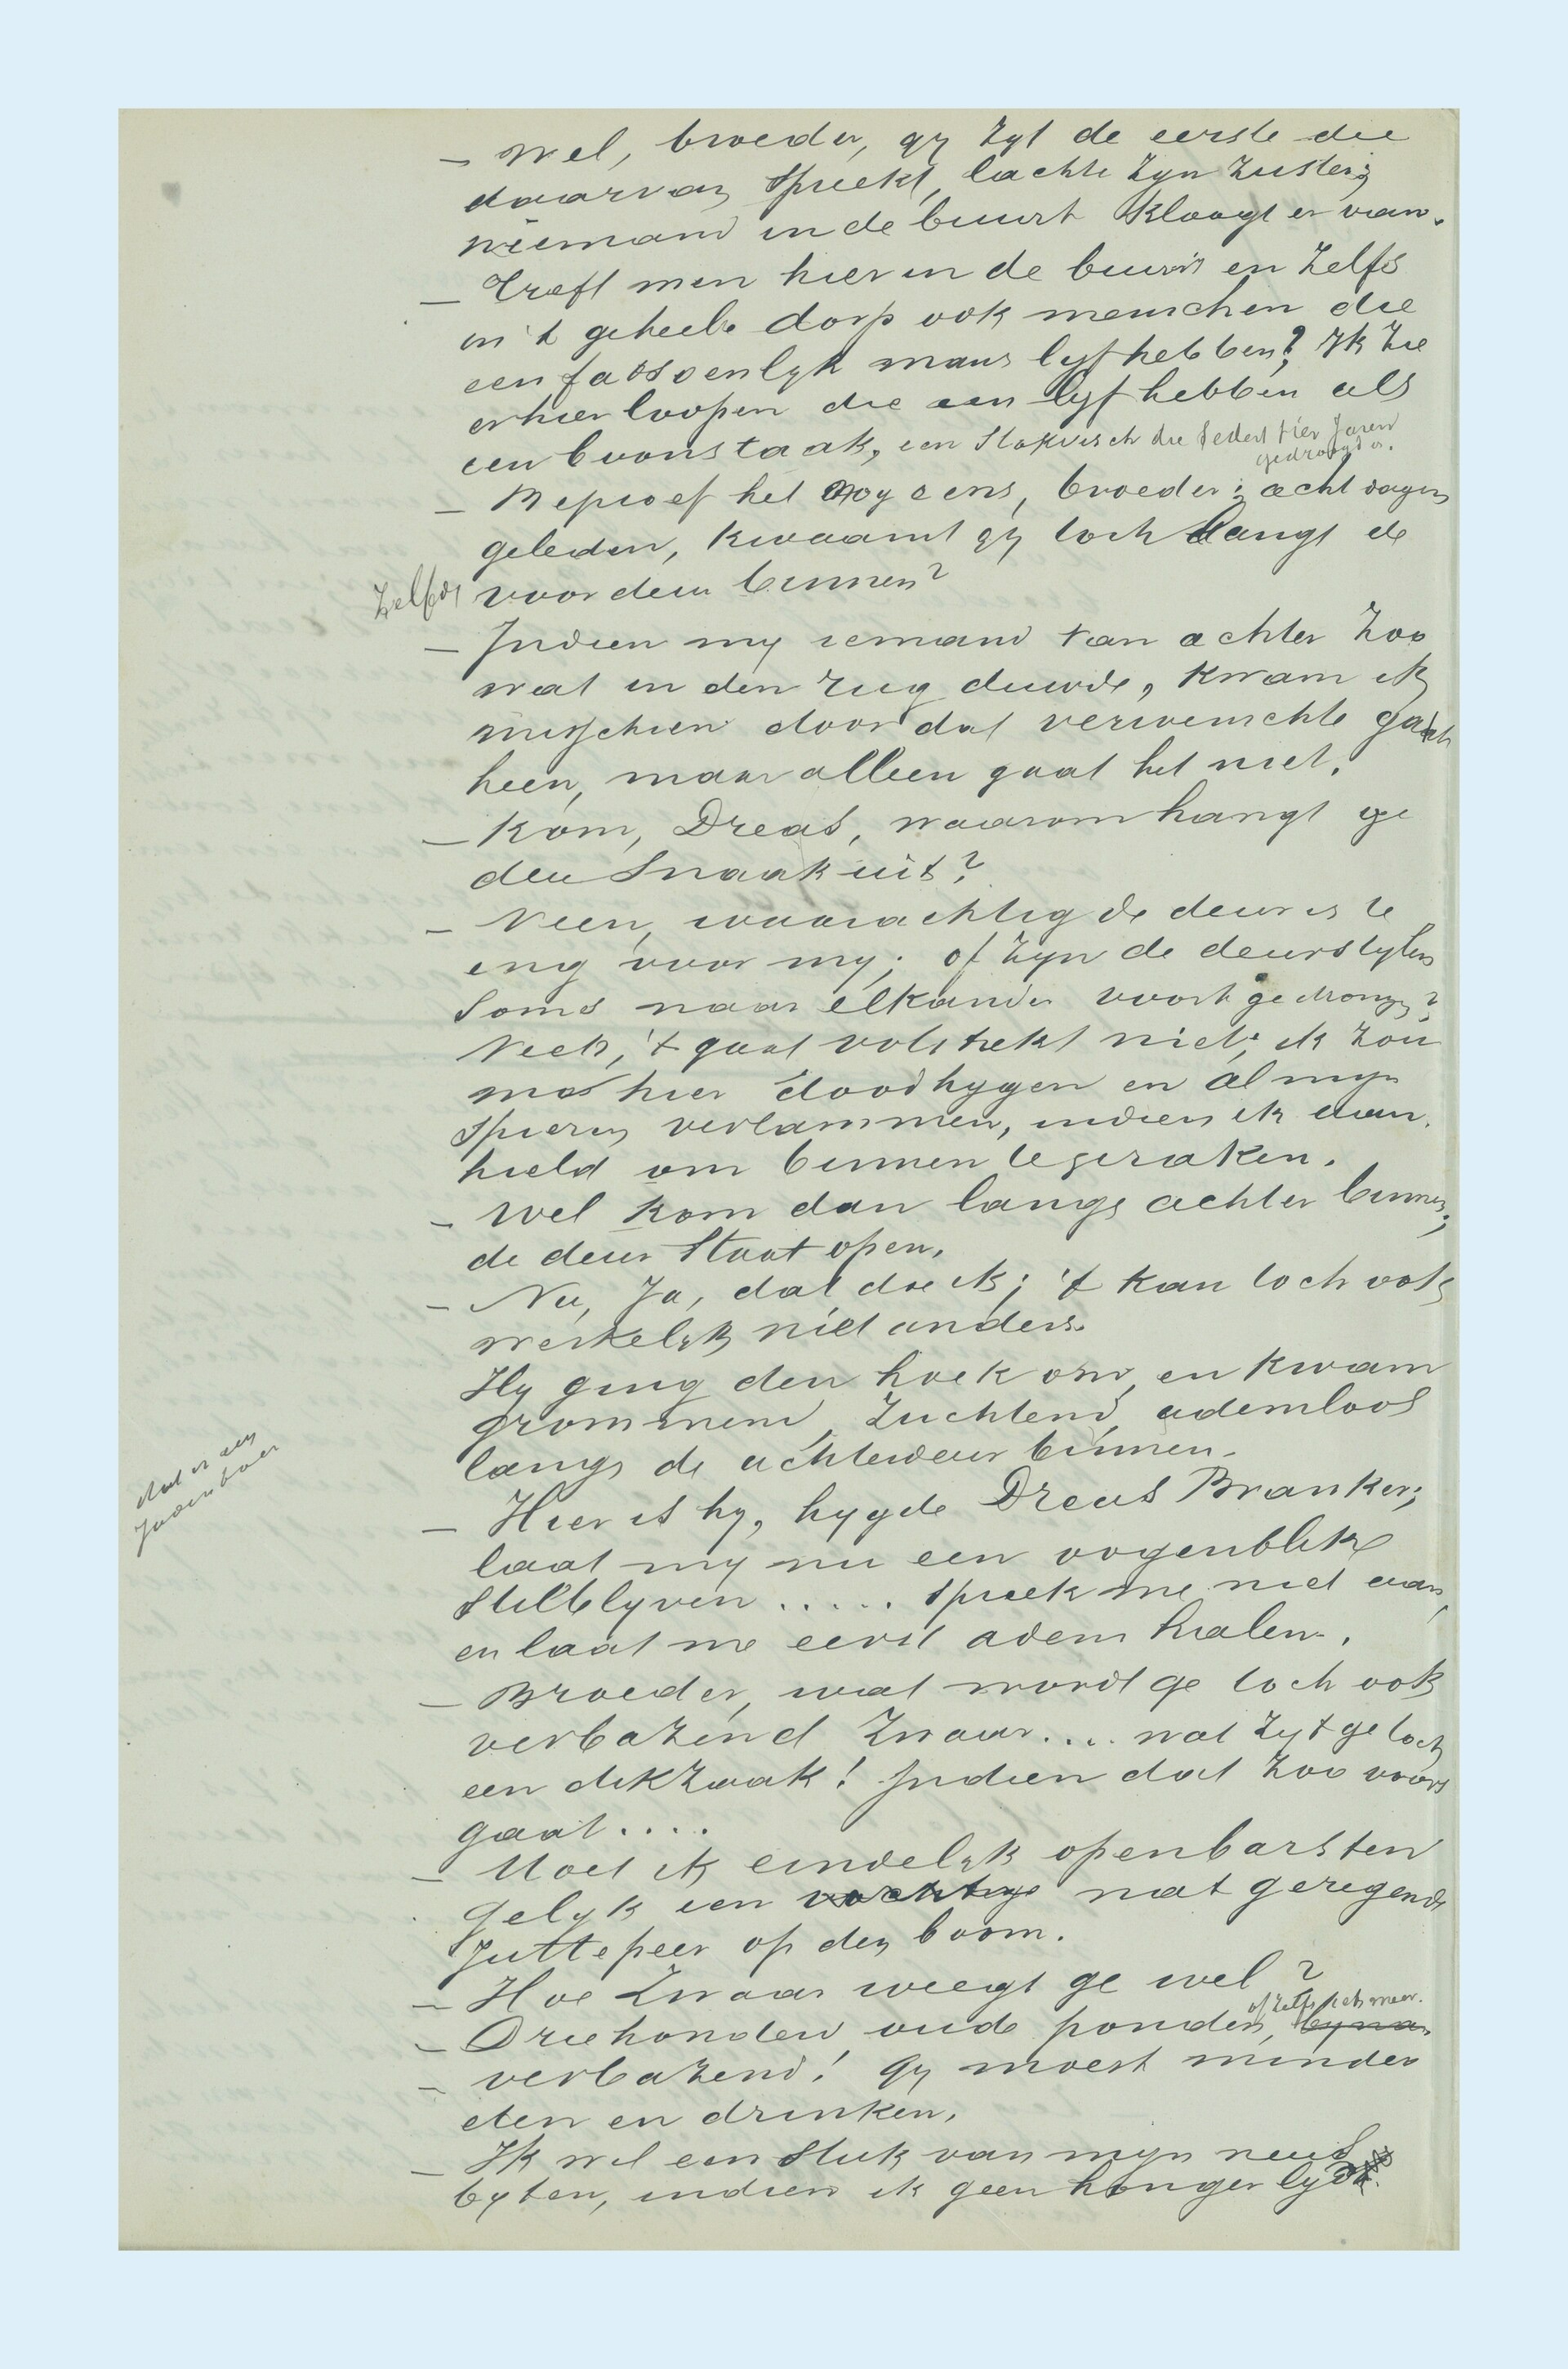 — Wel, broeder, gy zyt de eerste die
daarvan spreekt, lachte zyn zuster;
niemand in de buurt kloagt er van.
— Treft men hier in de buurt en zelfs
in 't geheele dorp ook menschen die
een fatsoenlyk mans lyf hebben? Ik zie
er hier loopen die een lyf hebben als
een boonstaak, een stokvisch die sedert tien jaren
gedroogd is.
— Beproef het nog eens, broeder; acht dagen
geleden, kwaamt gy toch langs de
Zelfde voordeur binnen?
— Indien my iemand van achter zoo
wat in den rug duwde, kwam ik
misschien door dat verwenschte gat
heen, maar alleen gaat het niet.
— Kom, Dreas, waarom hangt ge
den snaak uit?
— Neen, waarachtig de deur is te
eng voor my; of zyn de deurstylen
soms naar elkander voort gedrongen?
Neen, 't gaat volstrekt niet; ik zou
me hier doodhygen en al myn
spieren verlammen, indien ik aan
hield om binnen te geraken.
— Wel kom dan langs achter binnen;
de deur staat open.
— Nu, ja, dat doe ik; 't kan toch ook
werkelyk niet anders.
Hy ging den hoek om, en kwam
grommend, zuchtend, ademloos
langs de achterdeur binnen.
— Hier is hy, hygde Dreas Branker;
laat my nu een oogenblik
stilblyven ..... spreek me niet aan,
en laat me eerst adem halen.
— Broeder, wat wordt ge toch ook
verbazend zwaar.... wat zyt ge toch
een dikzak! Indien dat zoo voort
gaat....
— Moet ik eindelyk openbarsten
gelyk een vochtige nat geregende
juttepeer op den boom.
— Hoe zwaar weegt ge wel?
of zelfs iets meer.
— Driehonderd oude ponden, byna
— verbazend! gy moest minder
eten en drinken.
— Ik wil een stuk van myn neus
byten, indien ik geen honger lyd.
dat is een